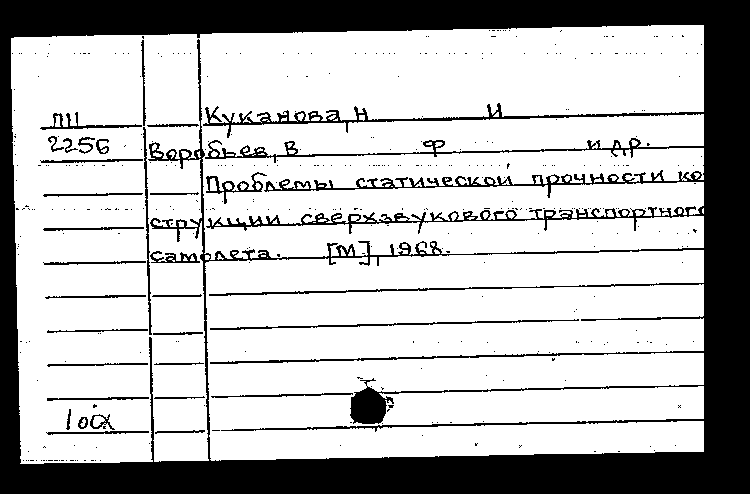 ПП Куканова, Н И
2256 Воробьев, В Ф и др.
Проблемы статической прочности ко
струкции сверхзвукового транспортног
самолета. [М], 1968.